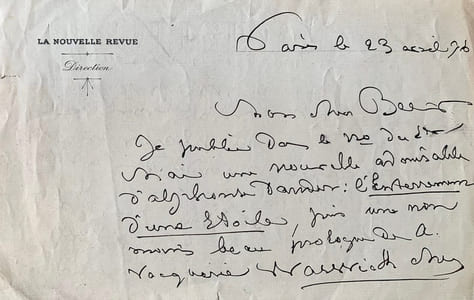 LA NOUVELLE REVUE
Direction
Paris le 23 avril 96
Mon cher
Je publie dans le No du 1er
Mai une nouvelle admirable
d'Alphonse Daudet : l'Enterrement
d'une Etoile, puis une non
moins beau prologue de A.
Vacquerie Warwick